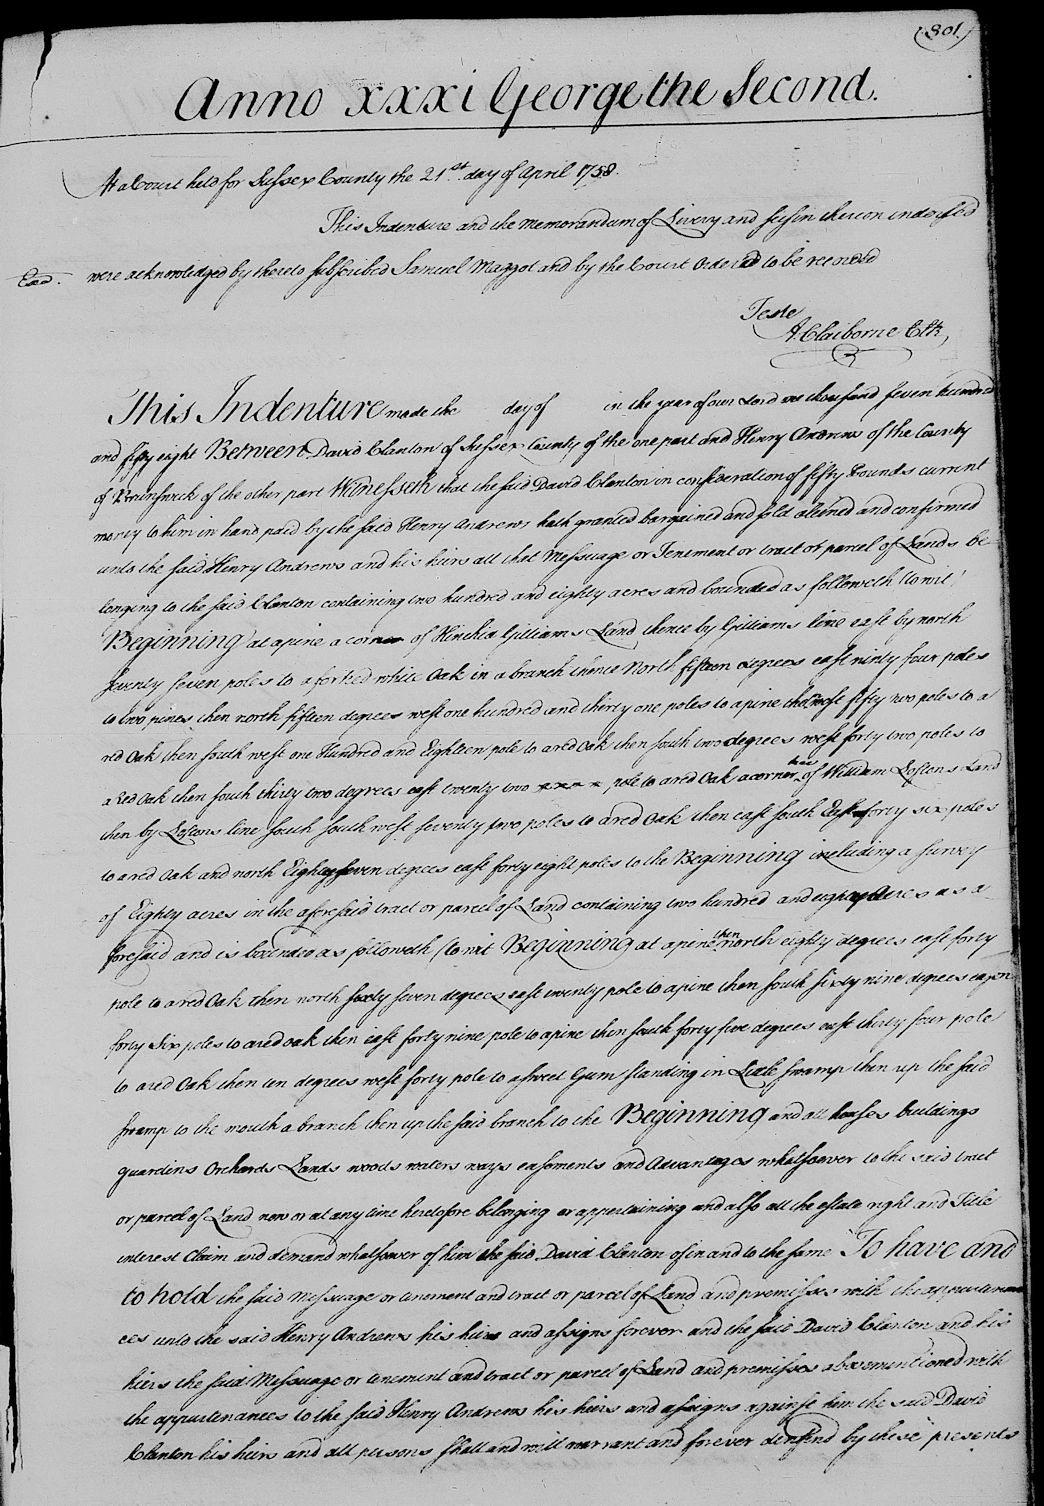 801.
Anno XXXI George the Second.
At a Court held for Sussex County the 21st. day of April 1758.
This Indenture and the Memorandum of Livery and seisin thereon indorsed
Exd. were acknowledged by thereto subscribed Samuel Maggot and by the Court Ordered to be recorded
Teste
A Claiborne Clk,
This Indenture made the day of in the year of our Lord one thousand seven hundred
and fifty eight Between David Clanton of Sussex County of the one part and Henry Andrews of the County
of Brunswick of the other part Witnesseth that the said David Clanton in consideration of fifty Pounds current
money to him in hand paid by the said Henry Andrews hath granted bargained and sold aliened and confirmed
unto the said Henry Andrews and his heirs all that Messuage or Tenement or tract or parcel of Lands be
longing to the said Clanton containing two hundred and eighty acres and bounded as followeth (to wit)
Beginning at a pine a corner of Hinchia Gilliams Land thence by Gilliams line east by north
seventy seven poles to a forked white Oak in a branch thence North fifteen degrees east ninty four poles
to two pines then north fifteen degrees west one hundred and thirty one poles to a pine then west fifty two poles to a
red Oak then south west one Hundred and Eighteen pole to a red Oak then south two degrees west forty two poles to
a Red Oak then south thirty two degrees east twenty two xxxx pole to a red Oak a corner tree of William Loftons Land
then by Loftons line south south west seventy two poles to a red Oak then east south East forty six poles
to a red Oak and north Eighty seven degrees east forty eight poles to the Beginning including a survey
of Eighty acres in the aforesaid tract or parcel of Land containing two hundred and eighty Acres as a
foresaid and is bounded as followeth (to wit Beginning at a pine then north eighty degrees east forty
pole to a red Oak then north sixty seven degrees east twenty pole to a pine then south sixty nine degrees east
forty six poles to a red oak then east forty nine pole to a pine then south forty five degrees east thirty four pole
to a red Oak then ten degrees west forty pole to a sweet Gum standing in Little swamp then up the said
swamp to the mouth a branch then up the said branch to the Beginning and all houses buildings
guardins Orchards Lands woods waters ways easments and Advantages whatsoever to the said tract
or parcel of Land now or at any time heretofore belonging or appertaining and also all the estate right and Title
interest Claim and demand whatsoever of him the said David Clanton of in and to the same To have and
to hold the said Messuage or tenement and tract or parcel of Land and premisses with the appurtenan
ces unto the said Henry Andrews his heirs and assigns forever and the said David Clanton and his
heirs the said Messuage or tenement and tract or parcel of Land and premisses abovementioned with
the appurtenances to the said Henry Andrews his heirs and assigns against him the said David
Clanton his heirs and all persons shall and will warrant and forever defend by these presents